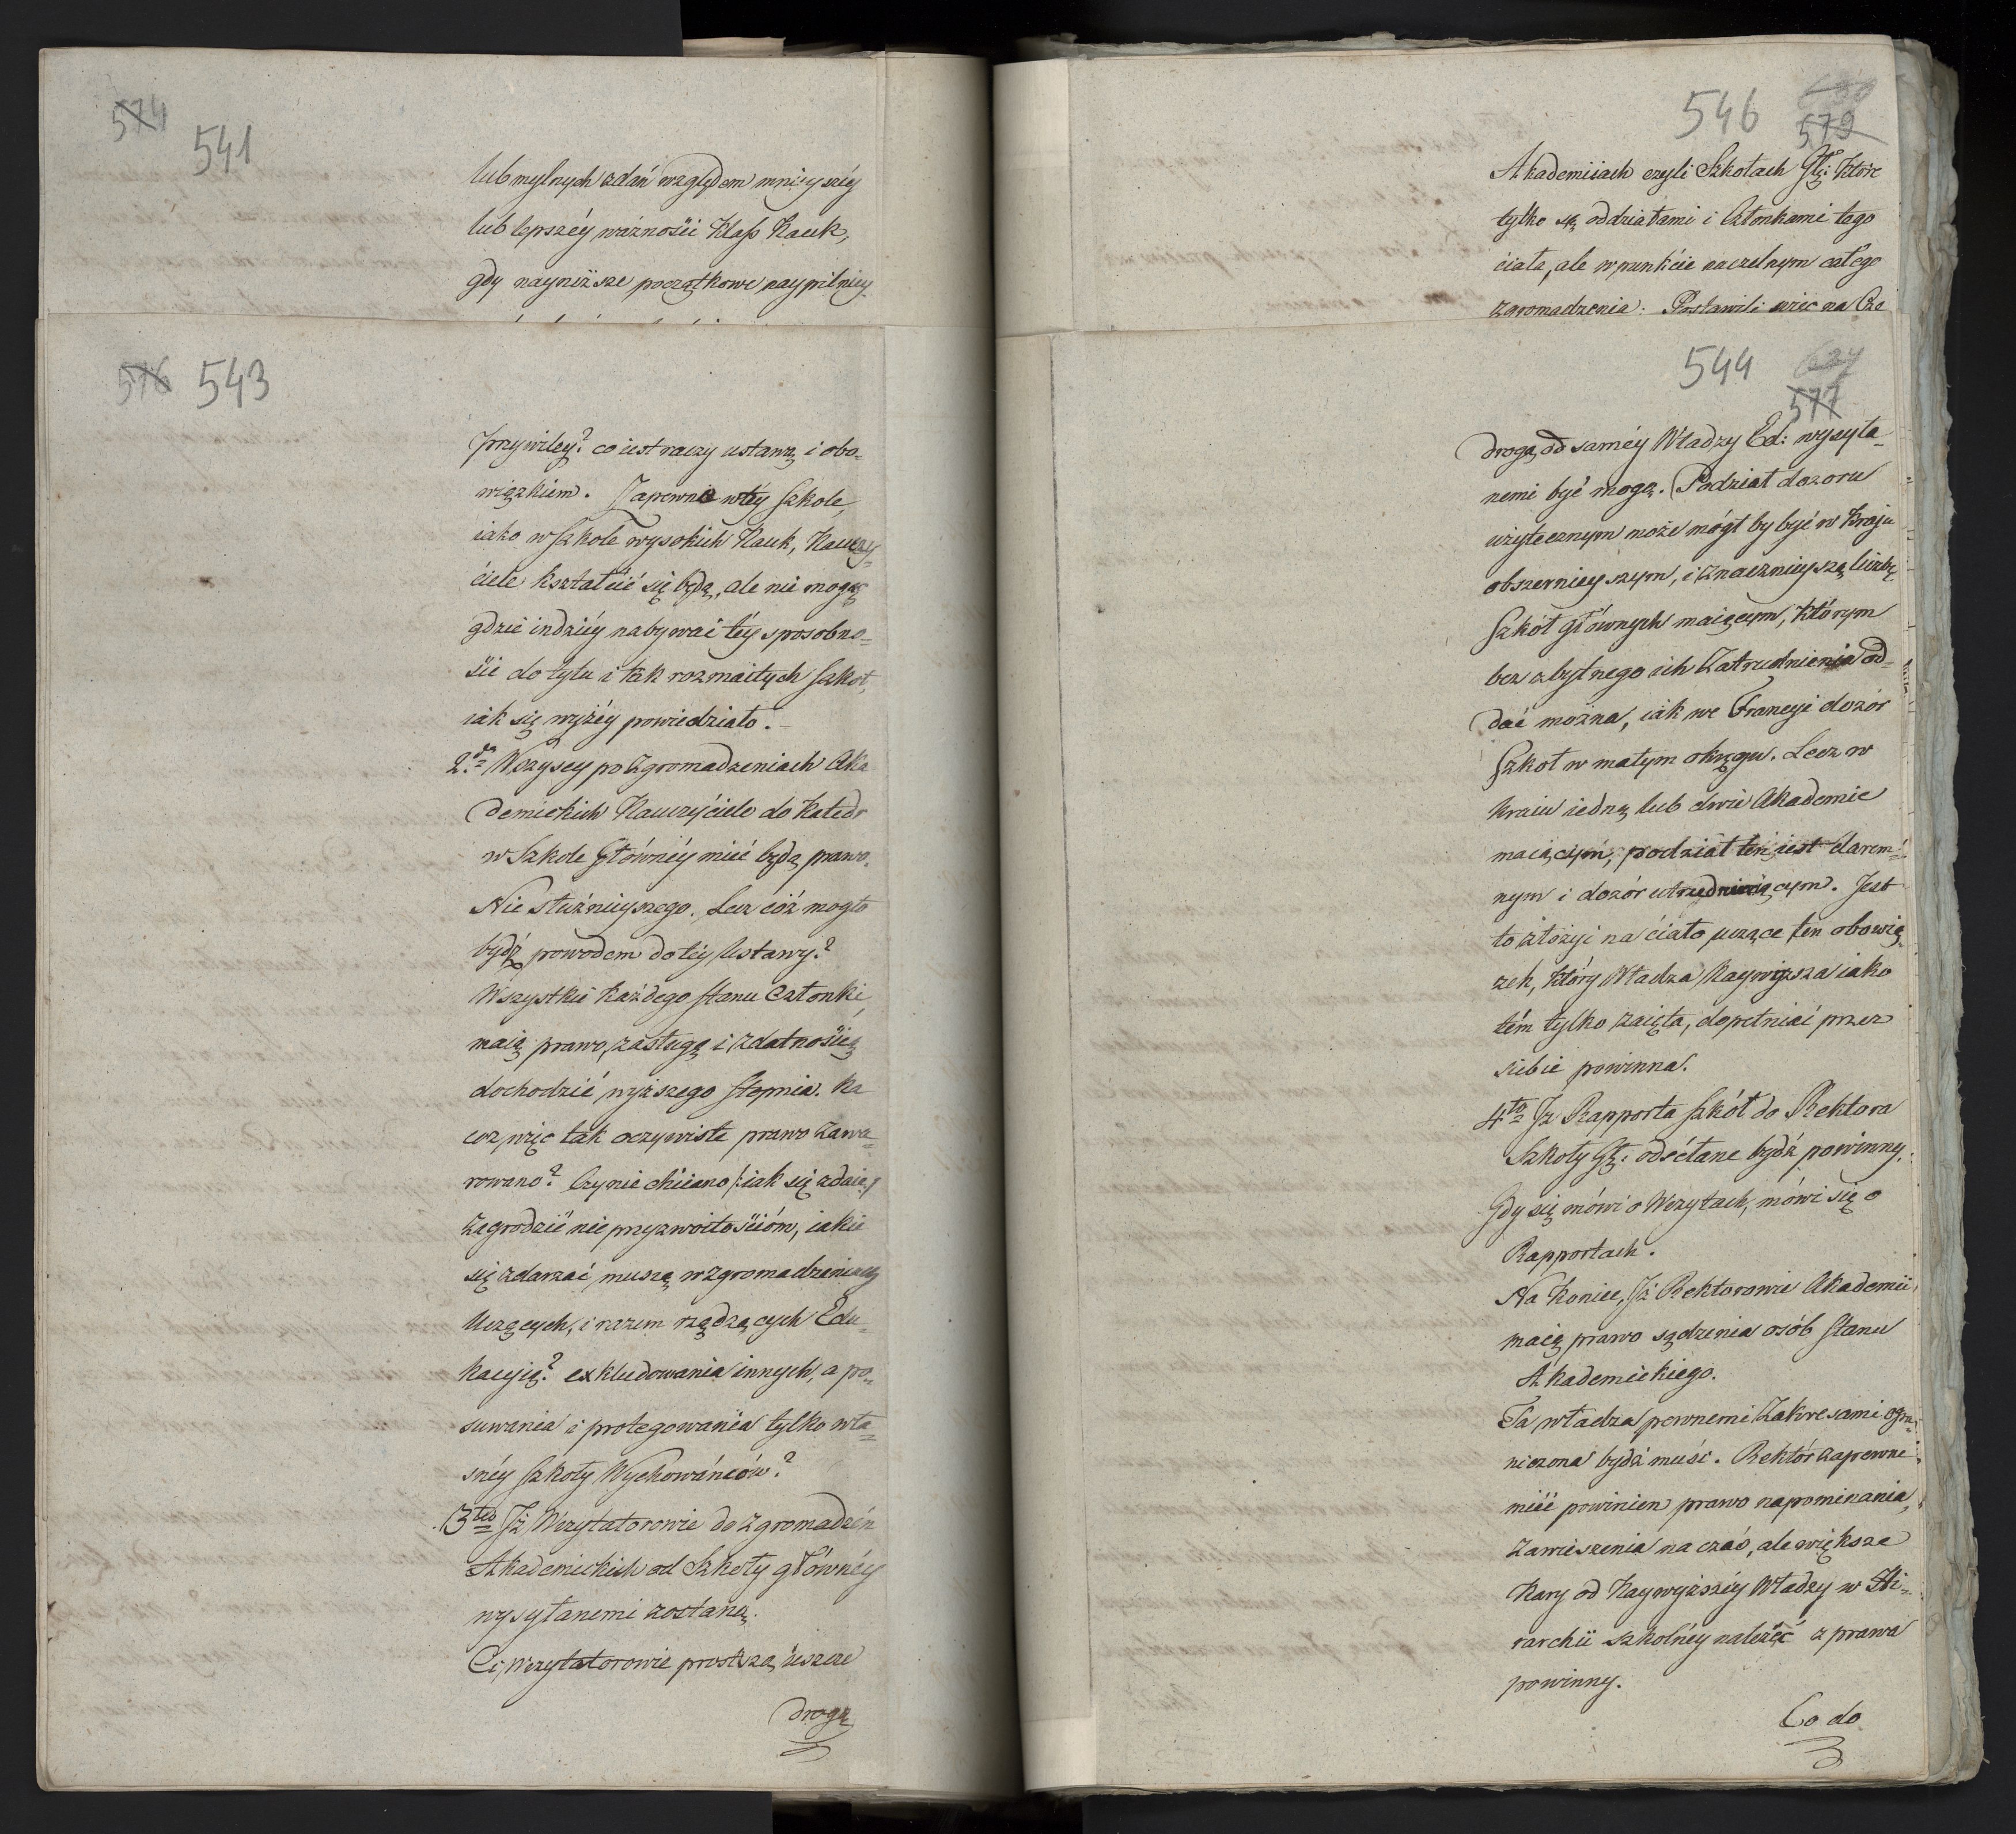 574
541
lub mylnych zdań względem mnieyszéy
lub lepszéy ważności Klass Nauk,
gdy nayniższe początkowe naypilniey
576 543
przywiley? co iest raczy ustawą i obo-
wiązkiem. Zapewnie w téy Szkole,
iako w Szkole wysokich Nauk, Nauczy-
ciele kształcić się będą, ale nie mogą
gdzie indziéy nabywać téy sposobno-
ści do tylu i tak rozmaitych Szkół,
iak się wyżéy powiedziało.-
2.do Wszyscy po Zgromadzeniach Aka
demickich Nauczyciele do Katedr
w Szkole Głównéy mieć będą prawo.
Nic słusznieyszego. Lecz cóż mogło
bydź powodem do téy Ustawy?
Wszystkie każdego stanu Członki,
maią prawo, zasługą i zdatnością
dochodzić wyższego stopnia. Na
coż więc tak oczywiste prawo zawa-
rowano? Czy nie chciano /:iak się zdaie:/
zagrodzić nieprzyzwoitościóm, iakie
się zdarzać muszą w zgromadzeniach
Uczących, i razem rządzących Edu-
kacyią? exkludowania innych, a po-
suwania i protegowania tylko wła-
snéy szkoły Wychowańców?
3tio Iż Wizytatorowie do Zgromadzeń
Akademickich od Szkoły głównéy
wysyłanemi zostaną.
Ci, Wizytatorowie prostszą ieszcze
drogą
546
579
Akademiiach czyli Szkołach Głł: które
tylko są oddziałami i Członkami tego
ciała, ale w punkcie naczelnym całego
zgromadzenia: Postawili więc na Cze
544 624
577
drogą od saméy Władzy Ed: wysyła-
nemi być mogą. Podział dozoru
użytecznym może mógł by być w kraju
obszernieyszym, i znacznieyszą liczbę
Szkół głównych maiącym, którym
bez zbytnego ich zatrudnienia od-
dać można, iak we Francyi dozór
Szkół w małym okręgu. Lecz w
kraiu iedną lub dwie Akademie
maiącym, podział ten iest darem-
nym i dozór utrudniaiącym. Jest
to złożyć na ciało uczące ten obowią-
zek, który Władza Naywyższa iako
tém tylko zaięta, dopełniać przez
siebie powinna.
4to Iż Rapporta szkół do Rektora
Szkoły Gł: odsełane bydź powinny.
Gdy się mówi o Wizytach, mówi się o
Rapportach.
Na koniec, Iż Rektorowie Akademii
maią prawo sądzenia osób stanu
Akademickiego.
Ta władza pewnemi zakresami ogra-
niczona bydź musi. Rektór zapewne
mieć powinien prawo napominania,
zawieszenia na czas, ale większe
kary od Naywyższéy Władzy w Hi-
rarchii szkolnéy należéć z prawa
powinny.
Co do